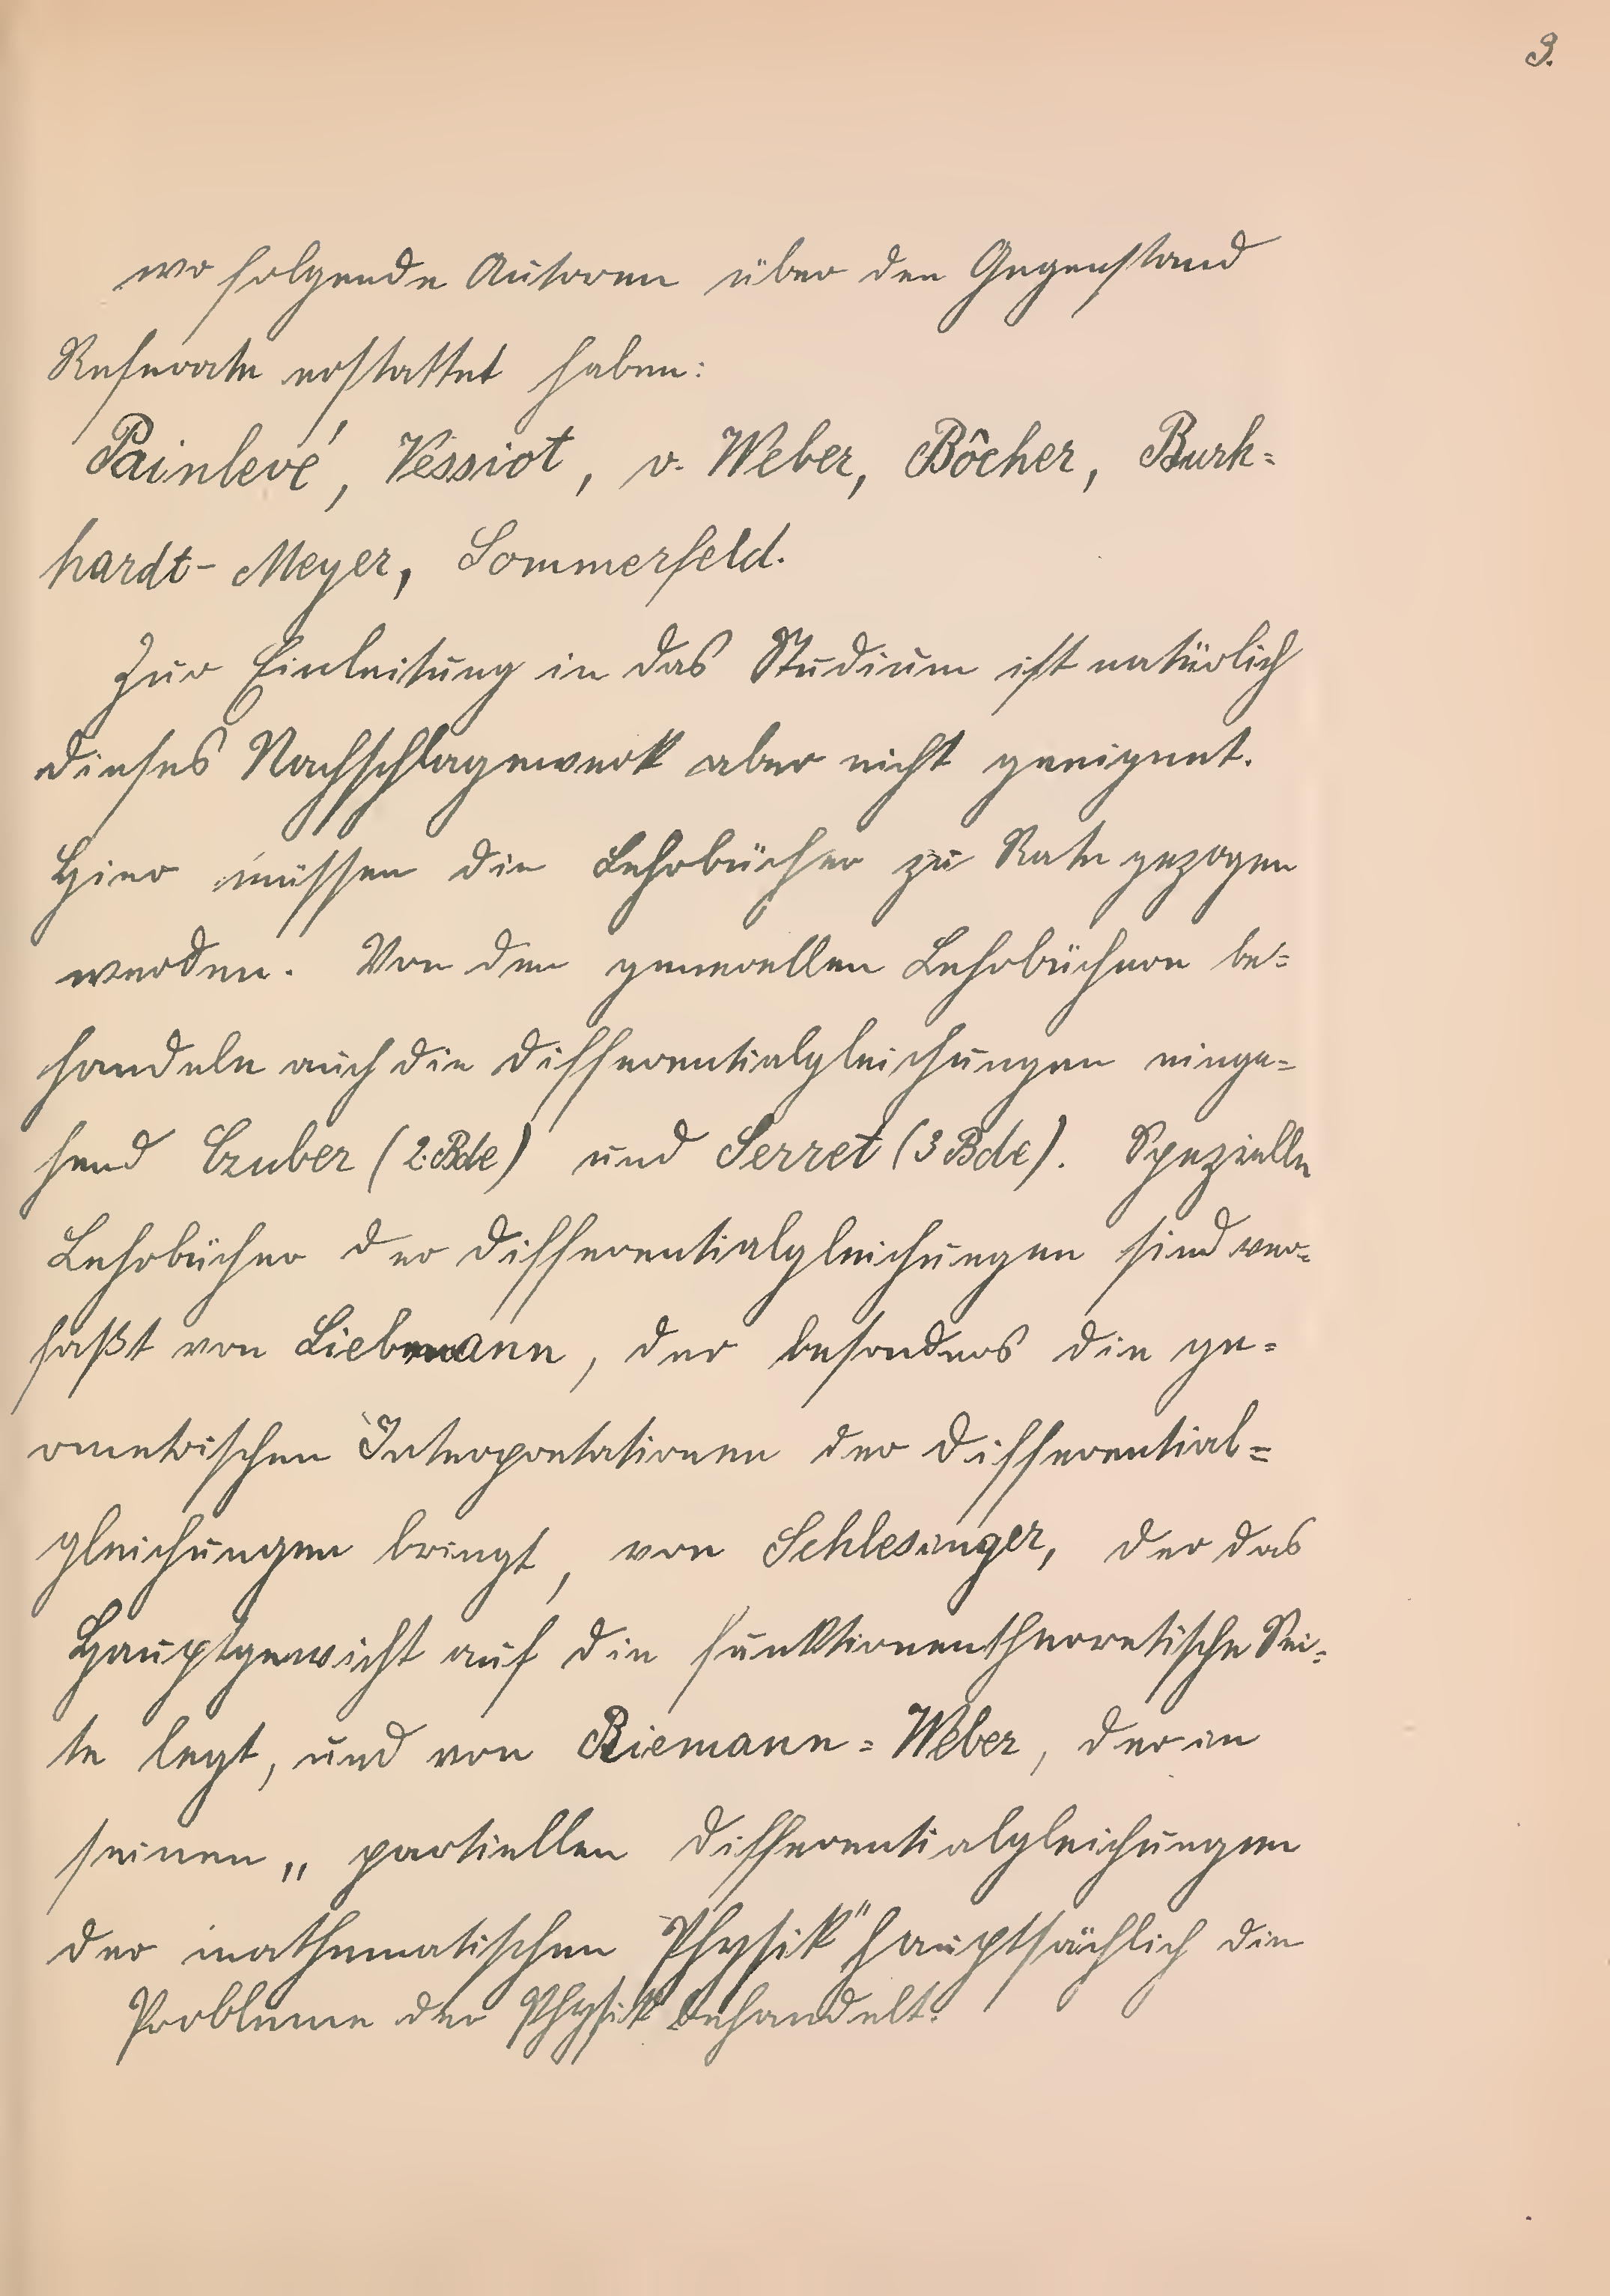 3.
wo folgende Autoren über den Gegenstand
Referate erstattet haben:
Painlevé, Vessiot, v. Weber, Bôcher, Burk=
hardt-Meyer, Sommerfeld.
Zur Einleitung in das Studium ist natürlich
dieses Nachschlagewerk aber nicht geeignet.
Hier müssen die Lehrbücher zu Rate gezogen
werden. Von den generellen Lehrbüchern be=
handeln auch die Differentialgleichungen einge=
hend Czuber (2 Bde) und Serret (3 Bde). Spezielle
Lehrbücher der Differentialgleichungen sind ver=
faßt von Liebmann, der besonders die ge=
ometrischen Interpretationen der Differential=
gleichungen bringt, von Schlesinger, der das
Hauptgewicht auf die funktionentheoretische Sei=
te legt, und von Riemann=Weber, der in
seinen „partiellen Differentialgleichungen
der mathematischen Physik" hauptsächlich die
Probleme der Physik behandelt.